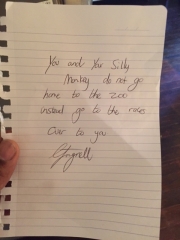 You and Your Silly
Monkey do not go
home to the zoo
instead go to the races
Over to you